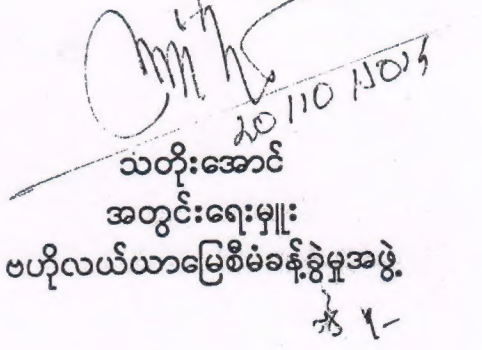 20/10/2025
သတိုးအောင်
အတွင်းရေးမှူး
ဗဟိုလယ်ယာမြေစီမံခန့်ခွဲမှုအဖွဲ့